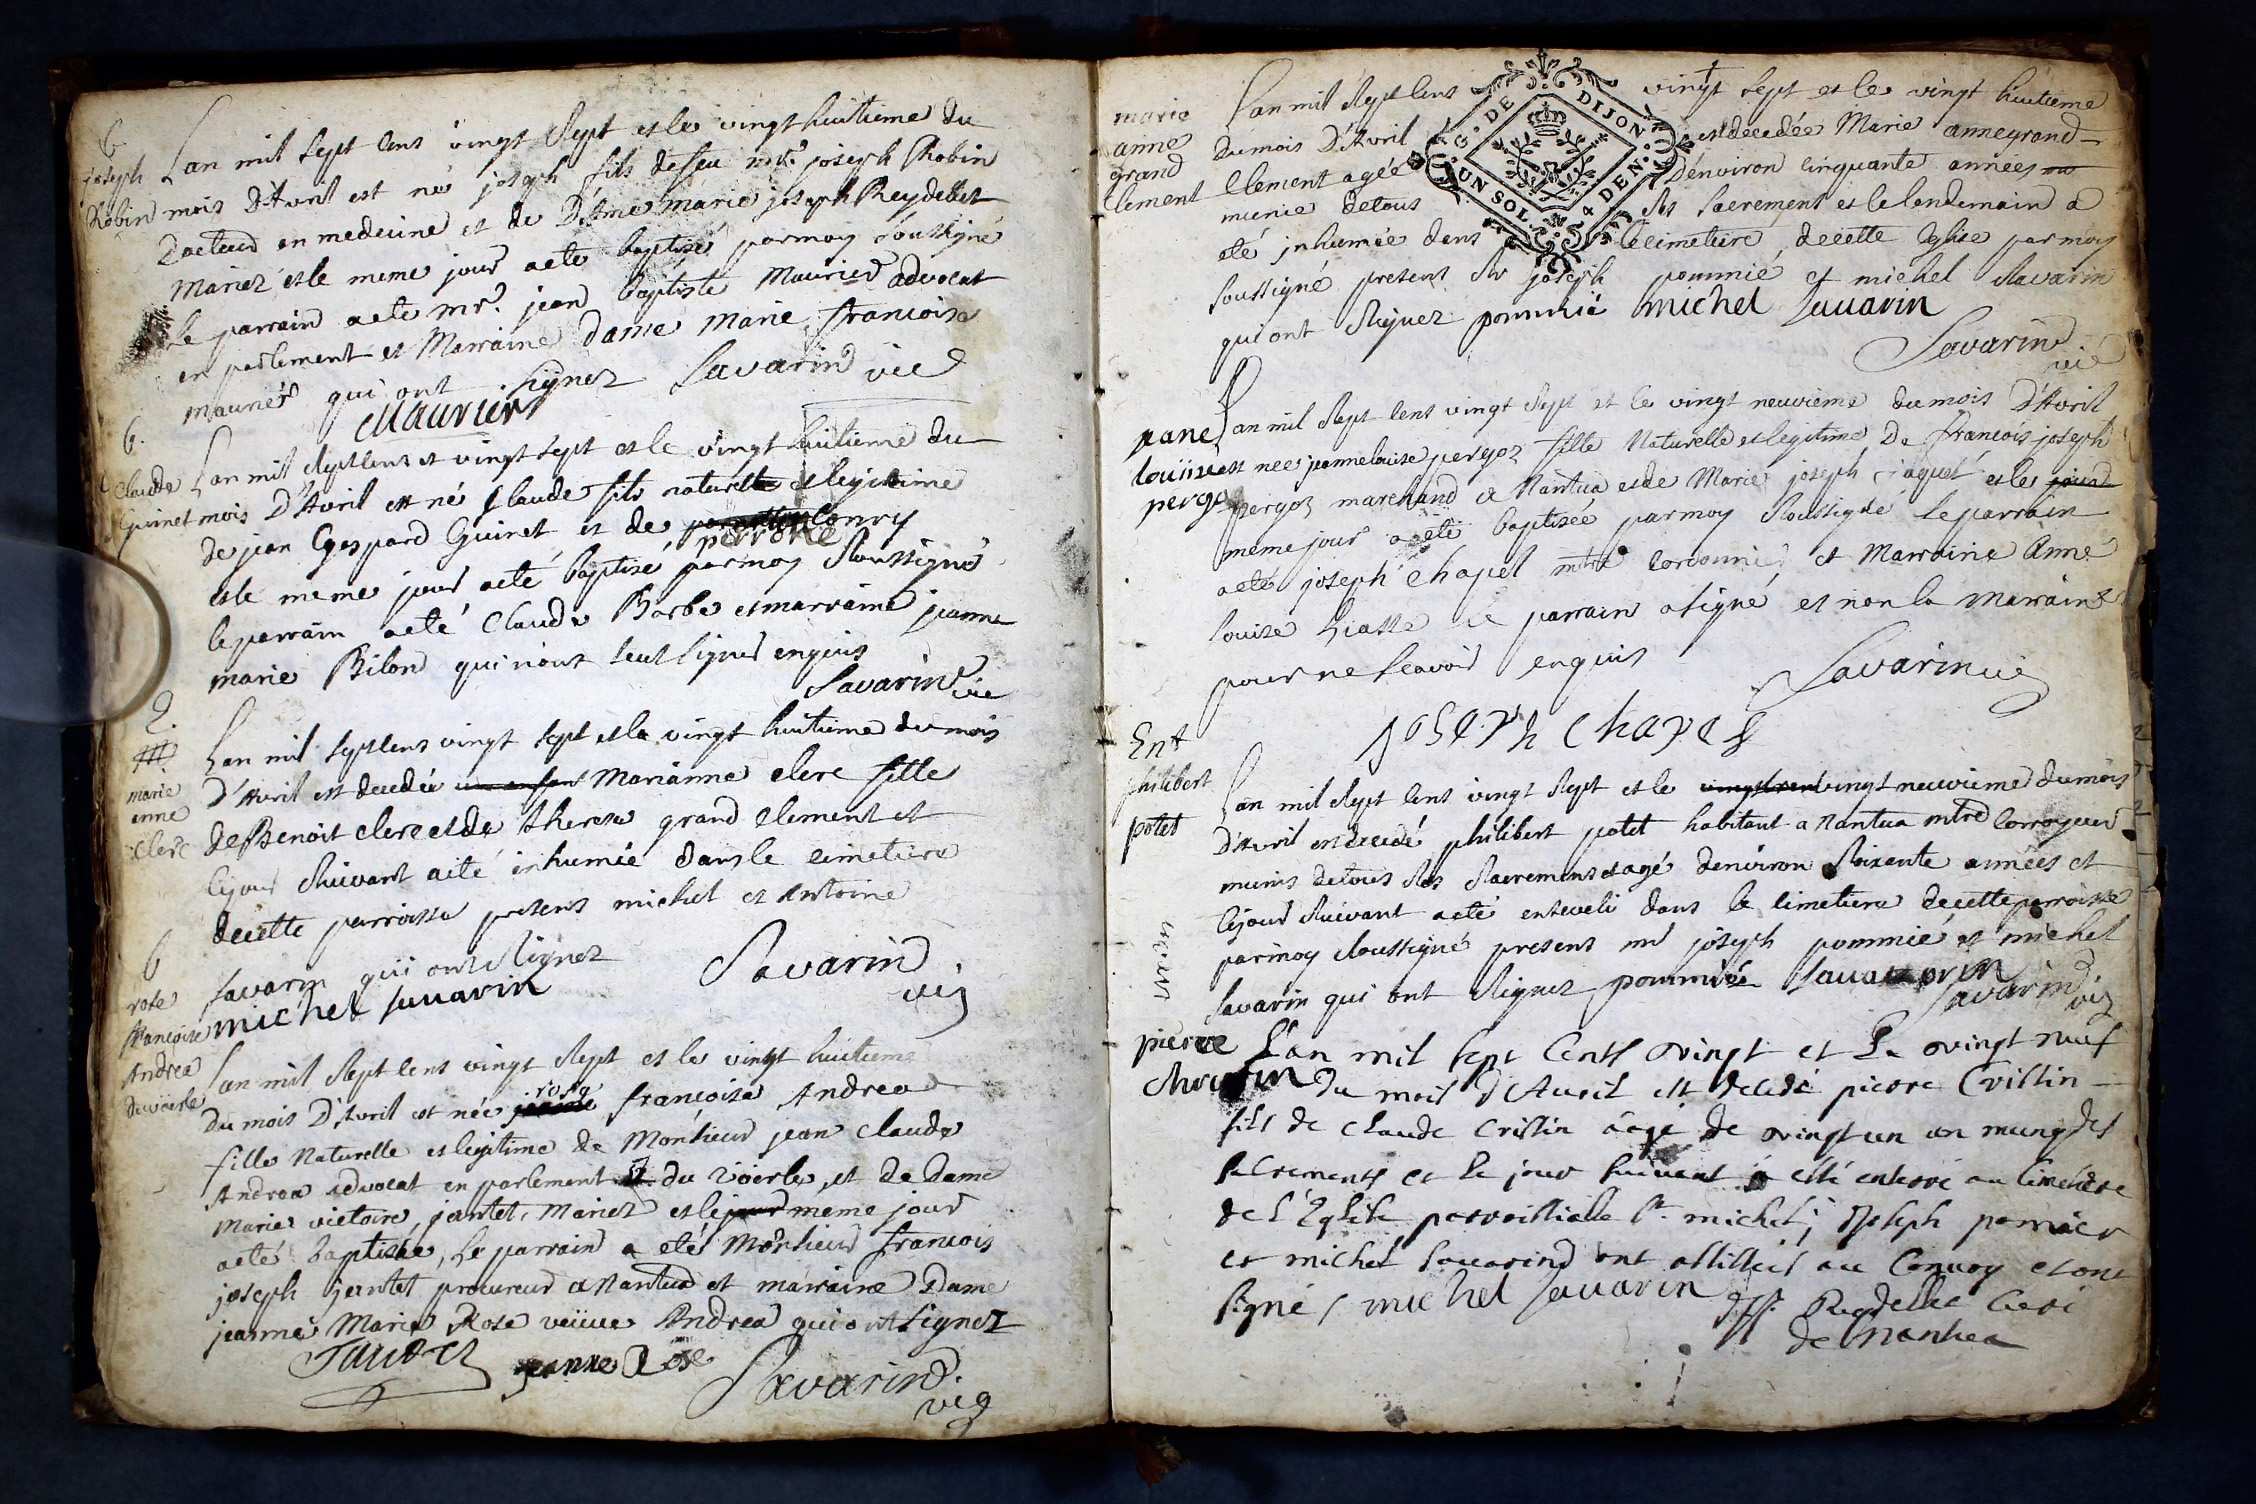 B
joseph
Robin
Lan mil sept cens vingt Sept et le vingt huitieme du
mois D'Avril est né joseph fils de feu mr. joseph Robin
Docteur en medecine et de Dame marie joseph Reydellet
Mariez et le meme jour a eté baptisé par moy soussigné
Le parrain a eté mr. jean baptiste Maurier advocat
en parlement et Marraine Dame Marie francoise
maurier qui ont signez Savarin vic
Maurier
b.
Claude
Guinet
Lan mil sept cens et vingt sept et le vingt huitieme du
mois D'Avril est né Claude fils naturelle et legitime
de jean Gaspard Guinet et de perrone Conry
et le meme jour a eté baptisé par moy soussigné
le parrain a eté Claude Barbe et marraine jeanne
marie Bilon qui n'ont sceut signer enquis
Savarin vic
marie
anne
Clerc
Lan mil sept cens vingt sept et le vingt huitieme du mois
D'Avril est decedée Marianne clerc fille
de Benoit clerc et de therese grand clement et
le jour suivant a eté inhumée dans le cimetiere
de cette parroisse presens michel et Antoine
savarin qui ont signez Savarin
michel sauarin vic
b
rose
francoise
Andrea
du voerle
Lan mil sept cens vingt sept et le vingt huitieme
du mois D'Avril est née rose francoise Andrea
fille Naturelle et legitime de Monsieur jean claude
Andrea advocat en parlement Sr du voerle, et de Dame
Marie victoire jantet, Mariez et le jour meme jour
a eté baptisée, Le parrain a eté Monsieur francois
joseph jantet procureur a Nantua et marraine Dame
jeanne Marie Rose veuve Andrea qui ont signez
Jantet jeanne Rose Savarin
vic
marie
anne
grand
clement
Lan mil sept cens vingt sept et le vingt huitieme
du mois D'Avril est decedée Marie anne grand
Clement agée D'environ cinquante années
munie de tous ses sacrement et le lendemain a
eté inhumée dans le cimetiere de cette Eglise par moy
soussigné presens Sr joseph pommié et michel Savarin
qui ont signez pommié michel sauarin
Savarin
vic
G. DE DIJON
UN SOL 4 DEN.
jane
louise
pergoz
Lan mil sept cens vingt sept et le vingt neuvieme du mois D'Avril
est nee jeanne louise pergoz fille Naturelle et legitime De francois joseph
pergoz marchand a Nantua et de Marie joseph jaquet et le jour
meme jour a eté baptisée par moy soussigné Le parrain
a eté joseph Chapel mtre cordonnier et Marraine Anne
louise le parrain a signé et non la marraine
pour ne scavoir enquis
Savarin vic
joseph chapel
Ent
philibert
potet
Lan mil sept cens vingt sept et le vingt neuvieme du mois
D'Avril est decedé philibert potet habitant a Nantua mtre corroyeur
munis de tous ses sacremens et agé denviron soixante années et
le jour suivant a eté enseveli dans le cimetiere de cette parroisse
par moy soussigné presens joseph pommié et michel
savarin qui ont signez pommié sauarin
Savarin vic
pierre
Christin
L'an mil sept Cents vingt et Le vingt neuf
du mois d'Auril est decedé pierre Cristin
fils de claude cristin aagé de vingt un an muny des
sacrements et le jour suivant a esté enterré au Cimetiere
de l'Eglise parroissialle St. michel; joseph pomier
et michel sauarind ont assistés au Conuoy et ont
signé / michel sauarin Reydellet Curé
de Nantua